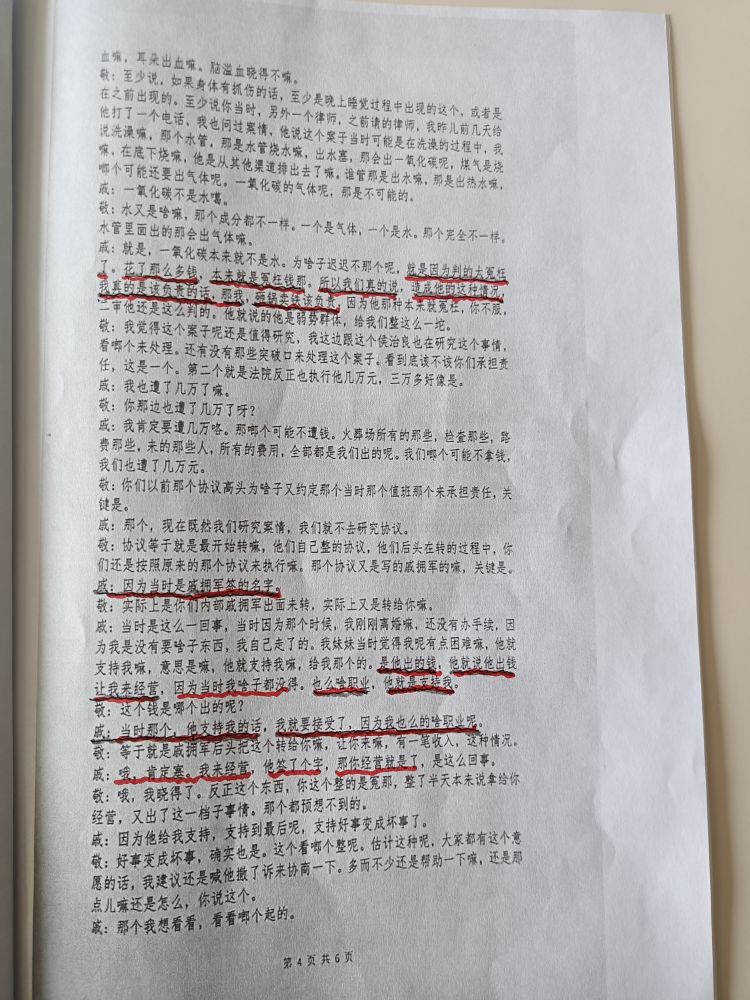 血嘛，耳朵出血嘛。脑溢血晓得不嘛。
敬：至少说，如果身体有抓伤的话，至少是晚上睡觉过程中出现的这个，或者是
在之前出现的。至少说你当时，另外一个律师，之前请的律师，我昨儿前几天给
他打了一个电话，我也问过案情，他说这个案子当时可能是在洗澡的过程中，我
说洗澡嘛，那个水管，那是水管烧水嘛，出水塞，那会出一氧化碳呢，煤气是烧
嘛，在底下烧嘛，他是从其他渠道排出去了嘛。谁管那是出水嘛，那是出热水嘛，
哪个可能还要出气体呢。一氧化碳的气体呢，那是不可能的。
戚：一氧化碳不是水噶。
敬：水又是啥嘛，那个成分都不一样。一个是气体，一个是水。那个完全不一样。
水管里面出的那会出气体嘛。
戚：就是，一氧化碳本来就不是水。为啥子迟迟不那个呢，就是因为判的太冤枉
了。花了那么多钱，本来就是冤枉钱那。所以我们真的说，造成他的这种情况，
我真的是该负责的话，那我，砸锅卖铁该负责，因为他那种本来就冤枉，你不服，
二审他还是这么判的。他就说的他是弱势群体，给我们整这么一坨。
敬：我觉得这个案子呢还是值得研究，我这边跟这个侯治良也在研究这个事情，
看哪个来处理。还有没有那些突破口来处理这个案子。看到底该不该你们承担责
任，这是一个。第二个就是法院反正也执行他几万元，三万多好像是。
戚：我也遭了几万了嘛。
敬：你那边也遭了几万了呀？
戚：我肯定要遭几万咯。那哪个可能不遭钱。火葬场所有的那些，检查那些，路
费那些，来的那些人，所有的费用，全部都是我们出的呢。我们哪个可能不拿钱，
我们也遭了几万元。
敬：你们以前那个协议高头为啥子又约定那个当时那个值班那个来承担责任，关
键是。
戚：那个，现在既然我们研究案情，我们就不去研究协议。
敬：协议等于就是最开始转嘛，他们自己整的协议，他们后头在转的过程中，你
们还是按照原来的那个协议来执行嘛。那个协议又是写的戚拥军的嘛，关键是。
戚：因为当时是戚拥军签的名字。
敬：实际上是你们内部戚拥军出面来转，实际上又是转给你嘛。
戚：当时是这么一回事，当时因为那个时候，我刚刚离婚嘛，还没有办手续，因
为我是没有要啥子东西，我自己走了的。我妹妹当时觉得我呢有点困难嘛，他就
支持我嘛，意思是嘛，他就支持我嘛，给我那个的。是他出的钱，他就说他出钱
让我来经营，因为当时我啥子都没得。也么啥职业，他就是支持我。
敬：这个钱是哪个出的呢？
戚：当时那个，他支持我的话，我就要接受了，因为我也么的啥职业呢。
敬：等于就是戚拥军后头把这个转给你嘛，让你来嘛，有一笔收入，这种情况。
戚：哦，肯定塞。我来经营，他签了个字，那你经营就是了，是这么回事。
敬：哦，我晓得了。反正这个东西，你这个整的是冤那，整了半天本来说拿给你
经营，又出了这一档子事情。那个都预想不到的。
戚：因为他给我支持，支持到最后呢，支持好事变成坏事了。
敬：好事变成坏事，确实也是。这个看哪个整呢。估计这种呢，大家都有这个意
愿的话，我建议还是喊他撤了诉来协商一下。多而不少还是帮助一下嘛，还是那
点儿嘛还是怎么，你说这个。
戚：那个我想看看，看看哪个起的。
第 4 页 共 6 页